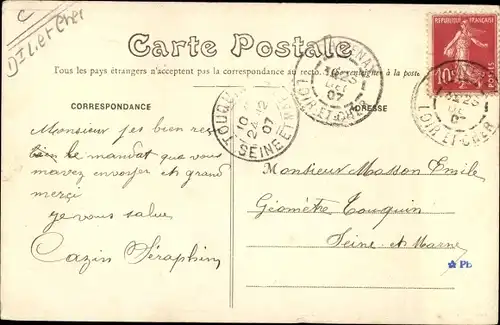 C
D I Let Cher
Carte Postale
Tous les pays étrangers n'acceptent pas la correspondance au recto. Se renseigner à la poste
REPUBLIQUE FRANÇAISE
10
LOIR-ET-CHER
LOIR-ET-CHER
07
10
24 12
07
SEINE ET
CORRESPONDANCE
ADRESSE
Monsieur jes bien res
le mandat que vous
mavez envoyer et grand
merçi
je vous salue
Cazin Séraphin
Monsieur Masson Emile
Géomètre Touquin
Seine-et-Marne
PL